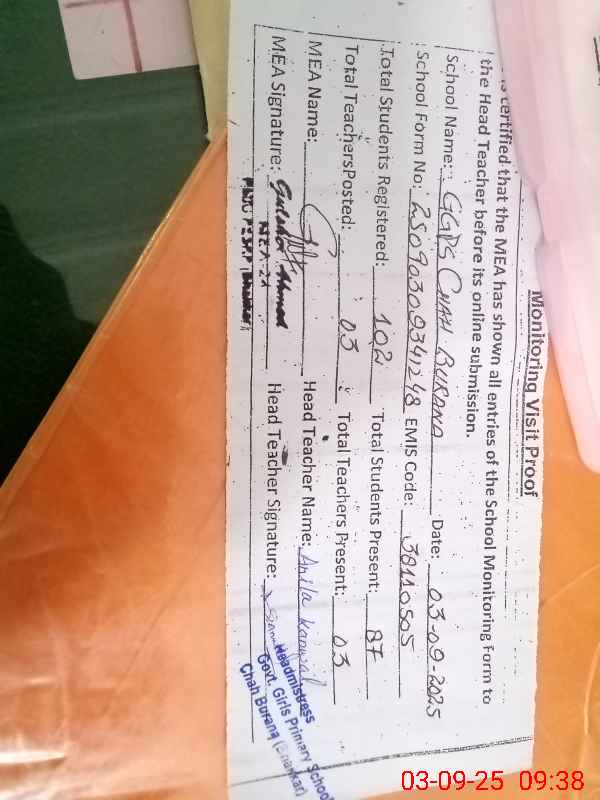 Monitoring Visit Proof
is certified that the MEA has shown all entries of the School Monitoring Form to
the Head Teacher before its online submission.
School Name: GGPS CHAH BURANA Date: 03-09-2025
School Form No: 25090309341248 EMIS Code: 38110505
Total Students Registered: 102 Total Students Present: 87
Total TeachersPosted: 03 Total Teachers Present: 03
MEA Name: Head Teacher Name: Anila Kanwal
MEA Signature: Gulshar Ahmad Head Teacher Signature:
MEA-21
Headmistress
Govt. Girls Primary School
Chah Burana (Bhakkar)
03-09-25 09:38